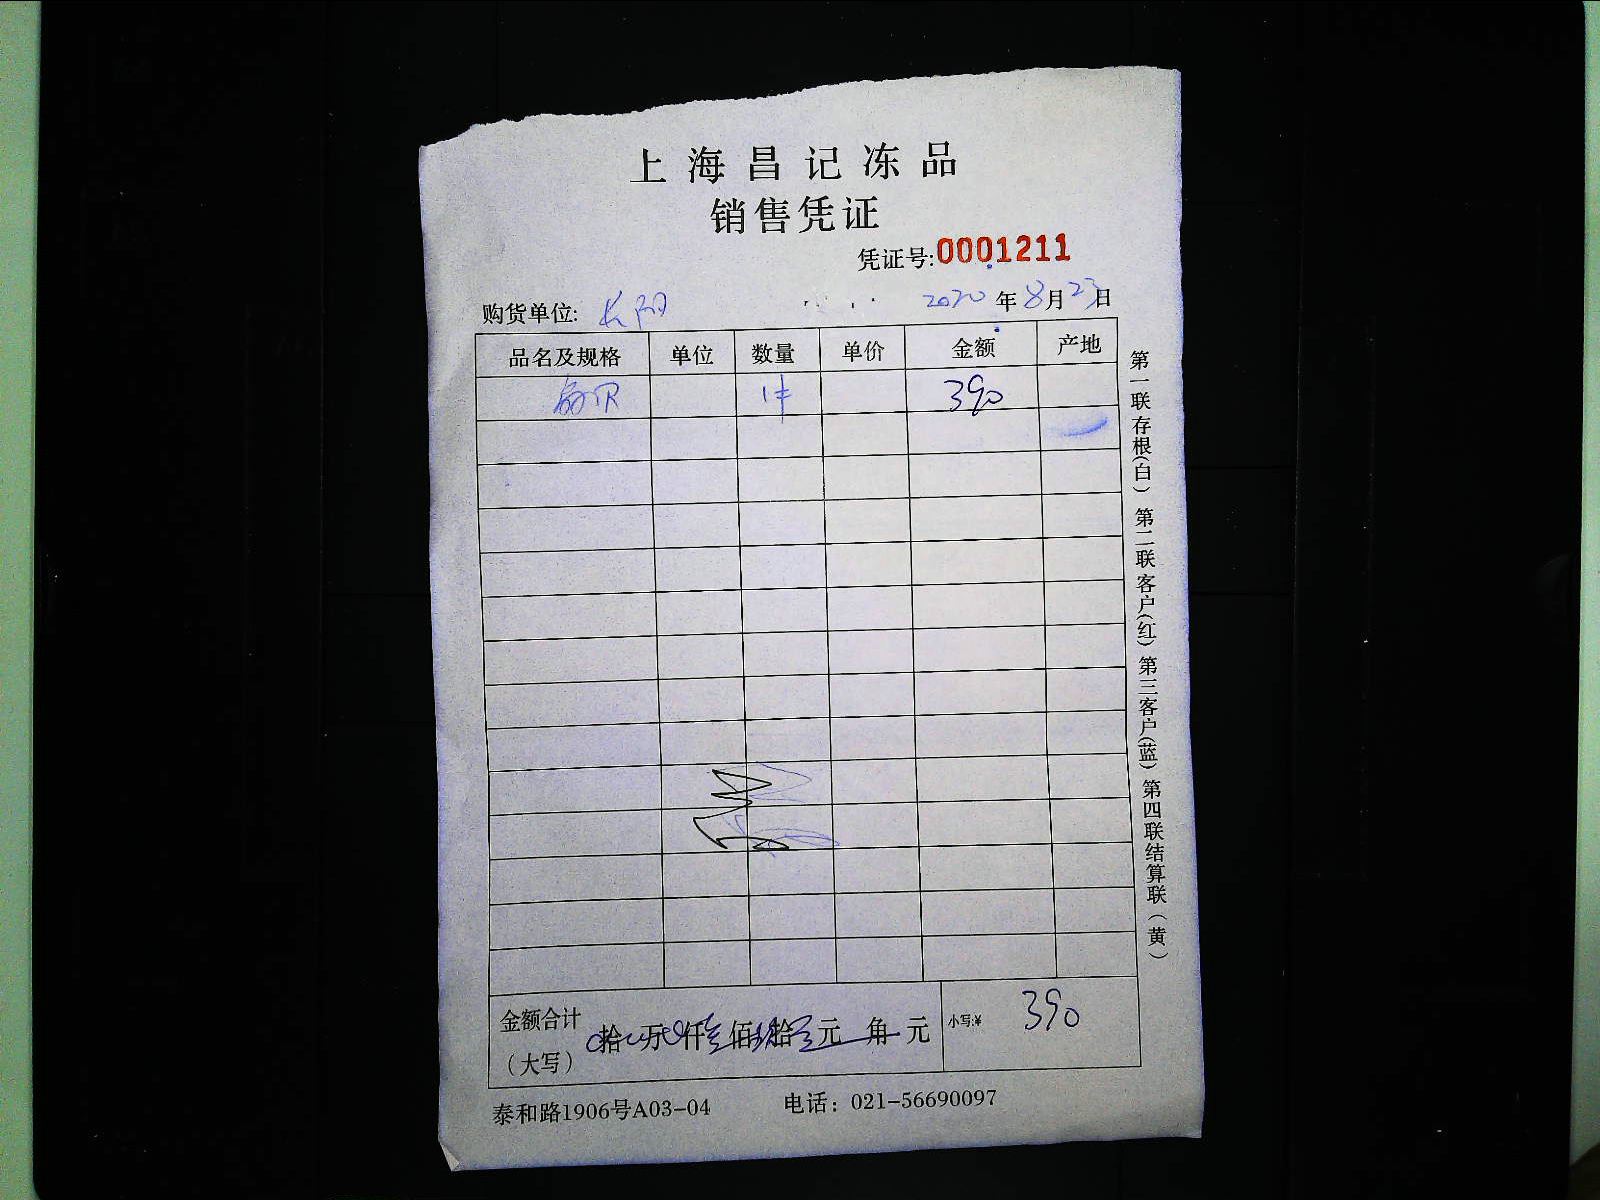 上海昌记冻品
销售凭证
凭证号:0001211
购货单位: 长阳 2020年8月23日
品名及规格 单位 数量 单价 金额 产地
1件 390
金额合计
(大写) 拾 万 仟 叁佰 玖拾 元 角 元 小写:¥ 390
泰和路1906号A03-04 电话：021-56690097
第一联存根(白) 第二联客户(红) 第三客户(蓝) 第四联结算联(黄)